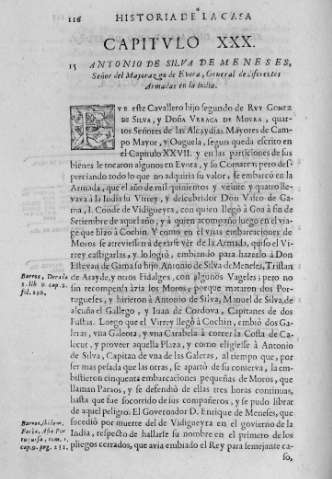 116 HISTORIA DE LA CASA
CAPITVLO XXX.
15 ANTONIO DE SILVA DE MENESES,
Señor del Mayorazgo de Evora, General de diferentes
Armadas en la India.
VE este Cavallero hijo segundo de RVY GOMEZ
DE SILVA, y DOÑA VRRACA DE MOVRA, quar-
tos Señores de las Alcaydias Mayores de Cam-
po Mayor, y Ouguela, segun queda escrito en
el Capitulo XXVII. y en las particiones de sus
bienes le tocaron algunos en EVORA, y su Comarca: pero des-
preciando todo lo que no adquiria su valor, se embarcò en la
Armada, que el año de mil quinientos y veinte y quatro lle-
vava à la India su Virrey, y descubridor Don Vasco de Ga-
ma, I. Conde de Vidigueyra, con quien llegò à Goa à fin de
Setiembre de aquel año, y à quien acompañò luego en el via-
ge que hizo à Cochin. Y como en el unas embarcaciones de
Moros se atreviessen à dexarse vèr de la Armada, quiso el Vi-
rrey castigarlas, y lo logrò, embiando para hazerlo à Don
Estevan de Gama su hijo Antonio de Silva de Meneses, Tristan
de Atayde, y otros Fidalgos, con algunos Vageles; pero no
sin recompensa àzia los Moros, porque mataron dos Por-
tugueses, y hirieron à Antonio de Silva, Manuel de Silva, de
alcuña el Gallego, y Iuan de Cordova, Capitanes de dos
Fustas. Luego que el Virrey llegò à Cochin, embiò dos Ga-
leras, vna Galeota, y vna Caravela à correr la Costa de Cale-
cut, y proveer aquella Plaza, y como eligiesse à Antonio
de Silva, Capitan de vna de las Galeras, al tiempo que, por
ser mas pesada que las otras, se apartò de su conserva, la em-
bistieron cinquenta embarcaciones pequeñas de Moros, que
llaman Paraos, y se defendiò de ellas tres horas continuas,
hasta que fue socorrido de sus compañeros, y se pudo librar
de aquel peligro. El Governador D. Enrique de Meneses, que
sucediò por muerte del de Vidigueyra en el govierno de la
India, respecto de hallarse su nombre en el primero de los
pliegos cerrados, que avia embiado el Rey para semejante ca-
so,
Barros, Decada
3. lib. 9. cap. 2.
fol.
Barros, ibidem.
Faria, Asia Por-
tuguesa, tom. 1.
cap. 9. pag. 211.